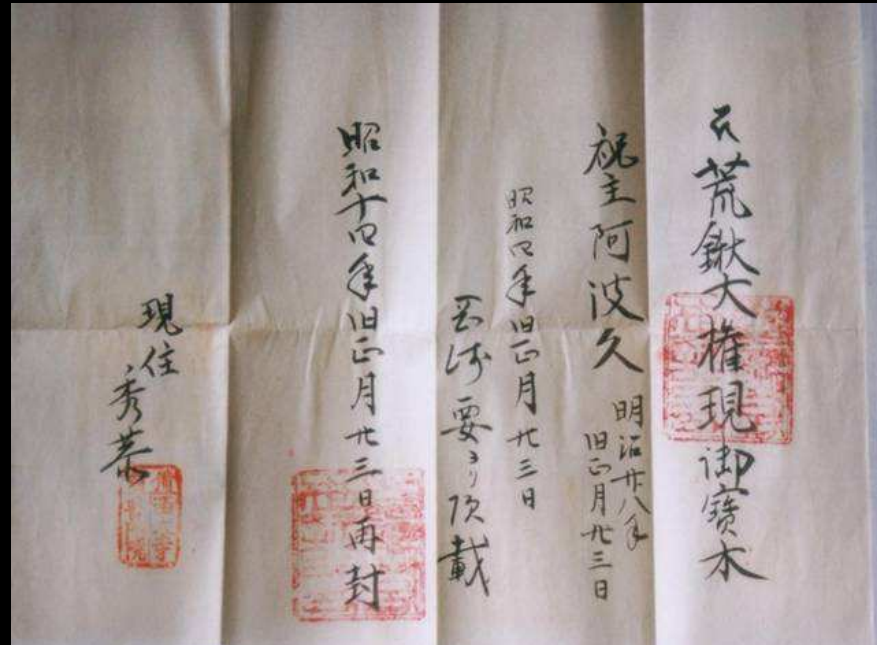 荒鍬大権現御寳木
祝主阿波久
明治廿八年
旧正月廿三日
昭和四年旧正月廿三日
要ヨリ頂載
昭和十四年旧正月廿三日再封
現住
秀恭